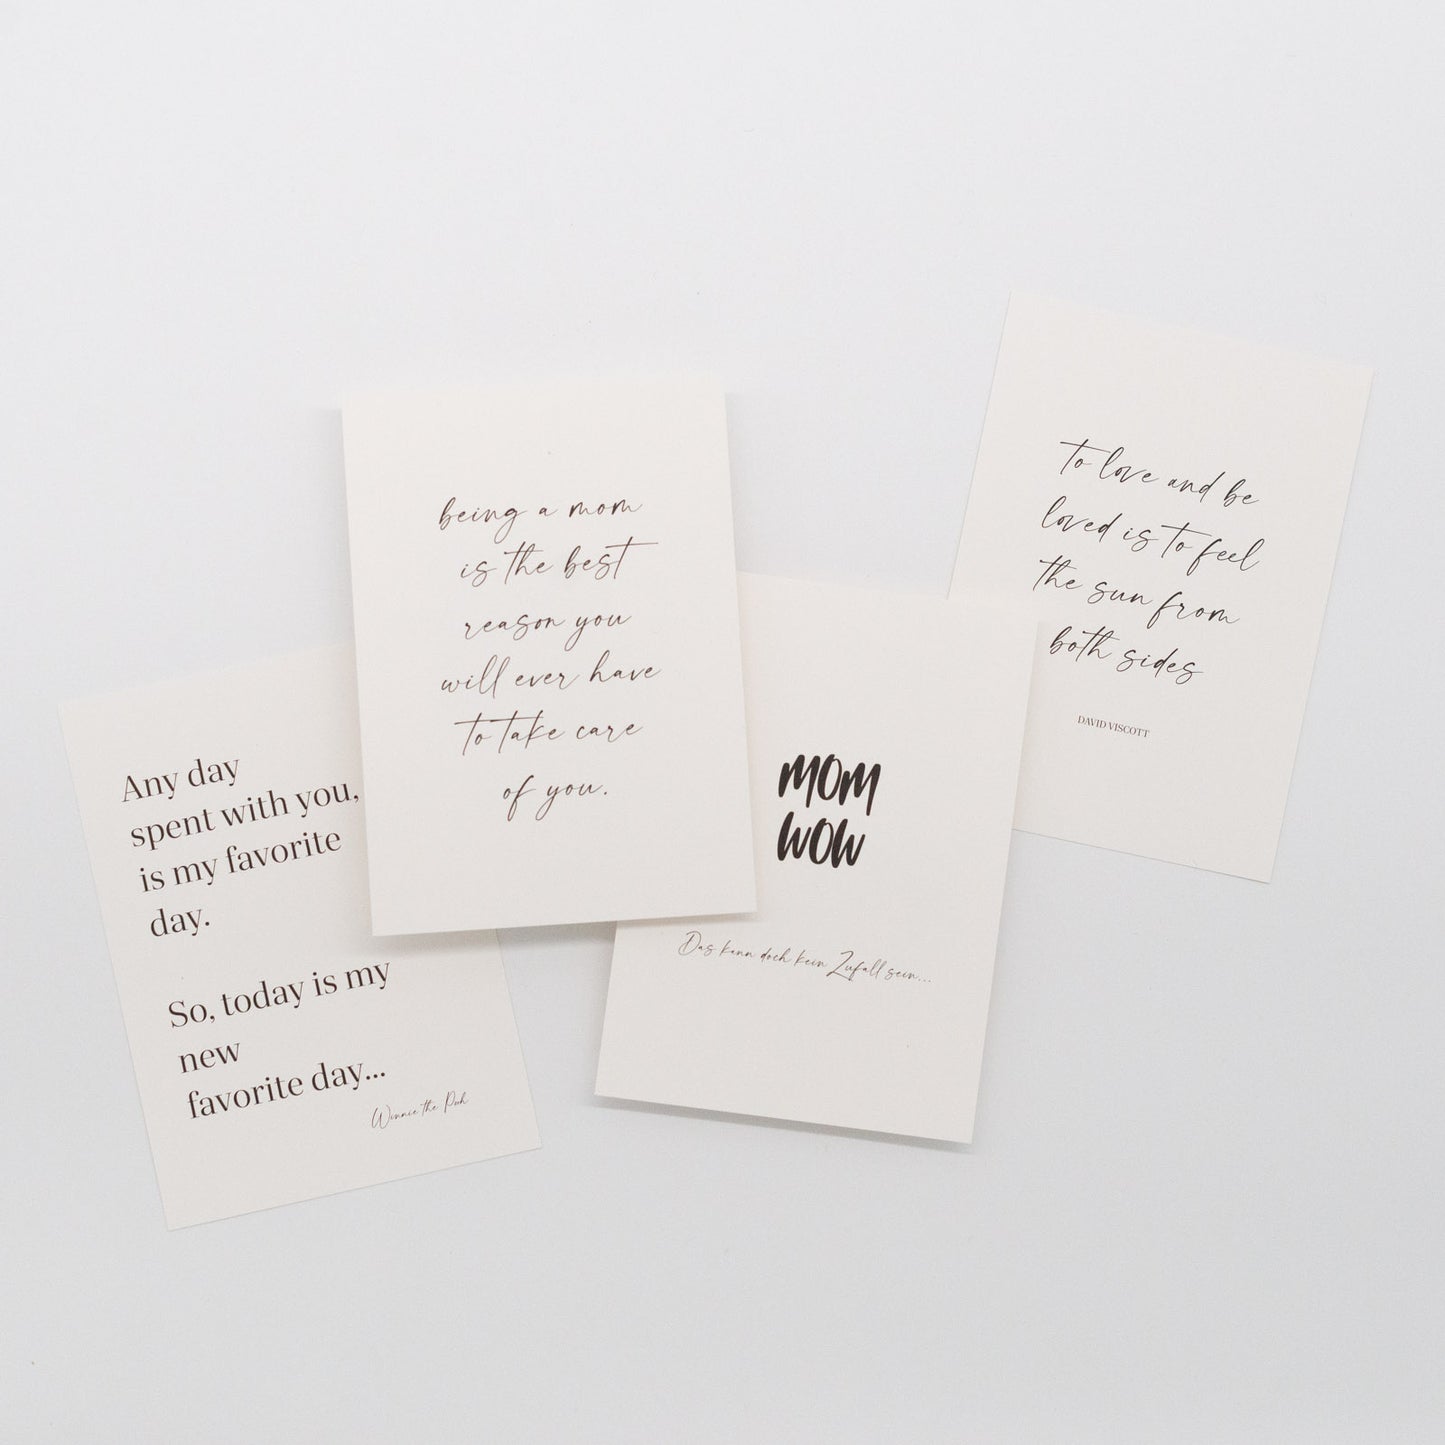 Any day
spent with you,
is my favorite
day.
So, today is my
new
favorite day...
Winnie the Pooh
being a mom
is the best
reason you
will ever have
to take care
of you.
MOM
WOW
Das kann doch kein Zufall sein...
to love and be
loved is to feel
the sun from
both sides
DAVID VISCOTT